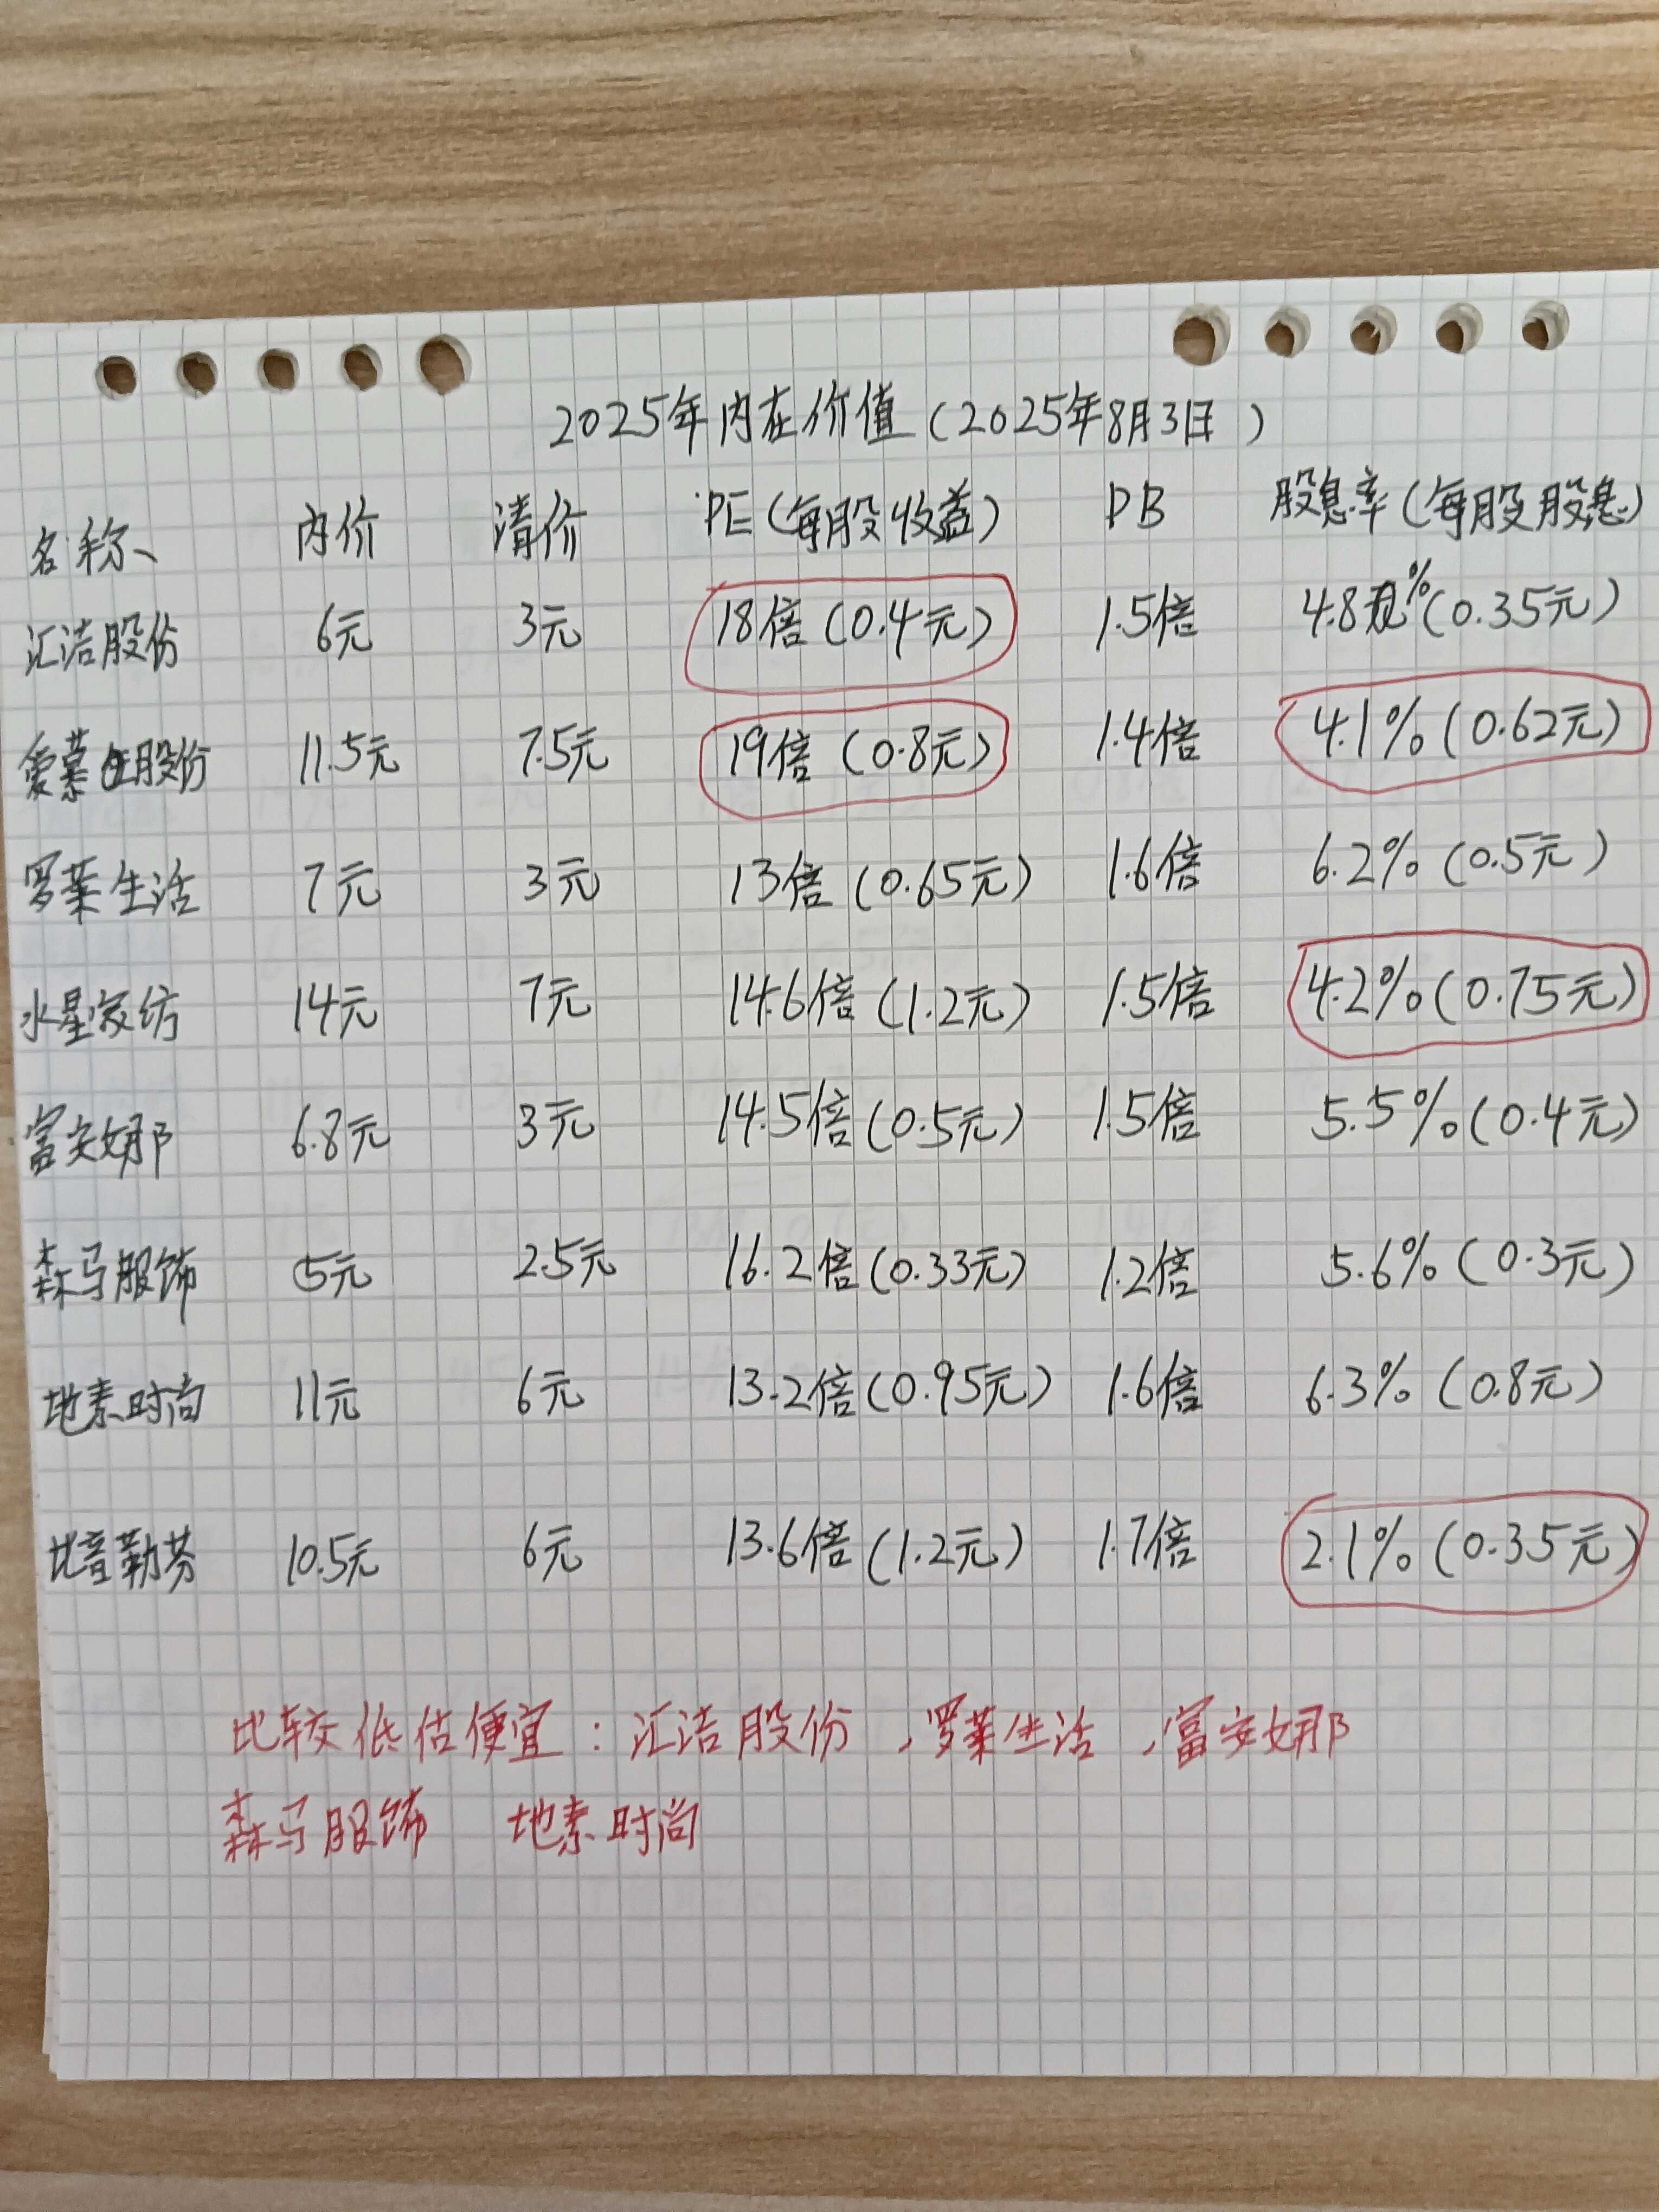 2025年内在价值(2025年8月3日)
名称、 内价 清价 PE(每股收益) PB 股息率(每股股息)
汇洁股份 6元 3元 18倍(0.4元) 1.5倍 4.8%(0.35元)
爱慕股份 11.5元 7.5元 19倍(0.8元) 1.4倍 4.1%(0.62元)
罗莱生活 7元 3元 13倍(0.65元) 1.6倍 6.2%(0.5元)
水星家纺 14元 7元 14.6倍(1.2元) 1.5倍 4.2%(0.75元)
富安娜 6.8元 3元 14.5倍(0.5元) 1.5倍 5.5%(0.4元)
森马服饰 5元 2.5元 16.2倍(0.33元) 1.2倍 5.6%(0.3元)
地素时尚 11元 6元 13.2倍(0.95元) 1.6倍 6.3%(0.8元)
比音勒芬 10.5元 6元 13.6倍(1.2元) 1.7倍 2.1%(0.35元)
比较低估便宜:汇洁股份,罗莱生活,富安娜
森马服饰 地素时尚